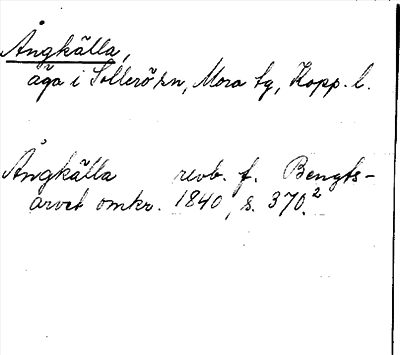 Ångkälla,
äga i Sollerö sn, Mora tg, Kopp. l.
Ångkälla revb. f. Bengts-
arvet omkr. 1840, s. 370.²